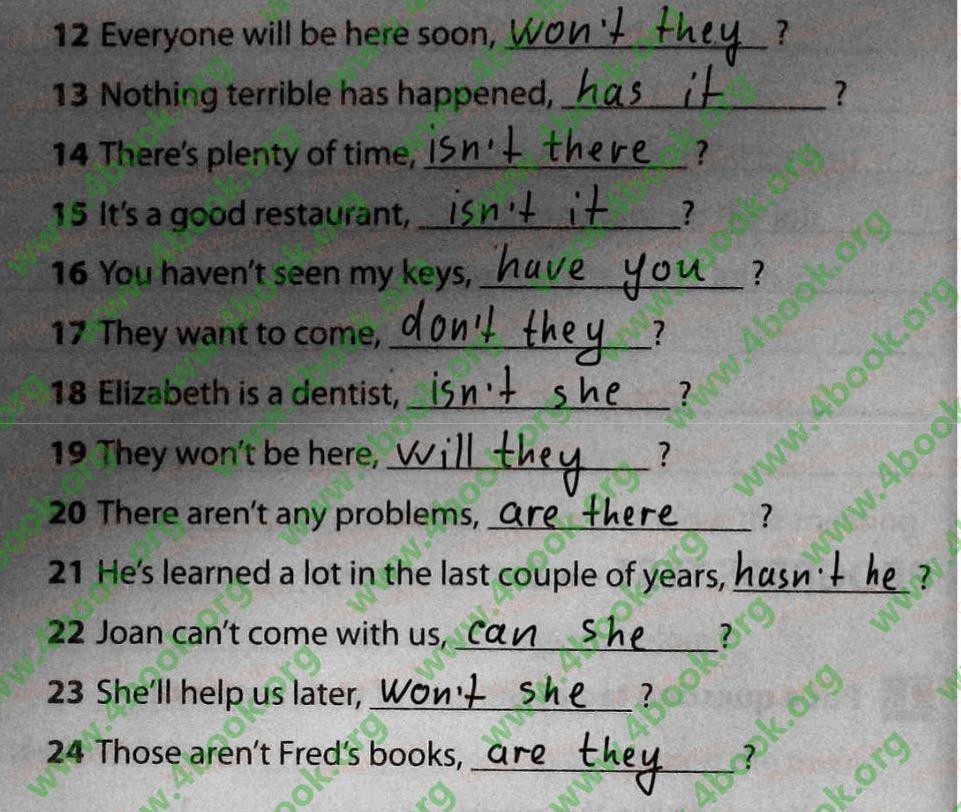 12 Everyone will be here soon, won't they ?
13 Nothing terrible has happened, has it ?
14 There's plenty of time, isn't there ?
15 It's a good restaurant, isn't it ?
16 You haven't seen my keys, have you ?
17 They want to come, don't they ?
18 Elizabeth is a dentist, isn't she ?
19 They won't be here, will they ?
20 There aren't any problems, are there ?
21 He's learned a lot in the last couple of years, hasn't he ?
22 Joan can't come with us, can she ?
23 She'll help us later, won't she ?
24 Those aren't Fred's books, are they ?
www.4book.org